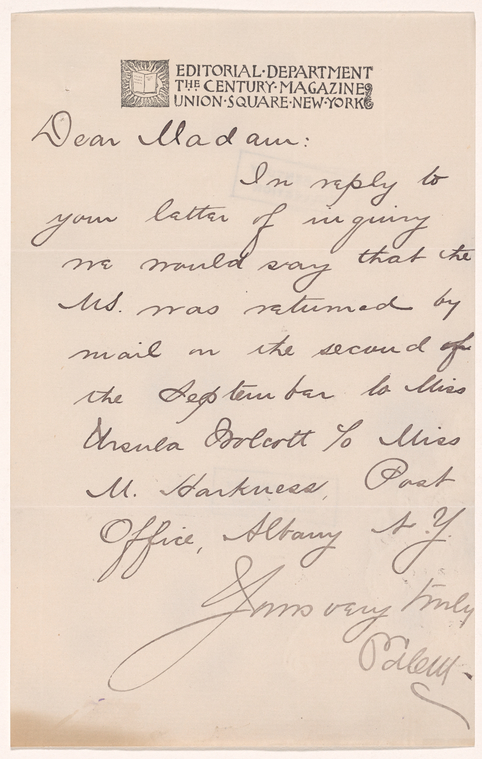 EDITORIAL·DEPARTMENT
THE CENTURY·MAGAZINE
UNION·SQUARE·NEW·YORK
Dear Madam:
In reply to
your letter of inquiry
we would say that the
MS. was returned by
mail on the second of
the September to Miss
Ursula Wolcott c/o Miss
M. Harkness, Post
Office, Albany N.Y.
Yours very truly